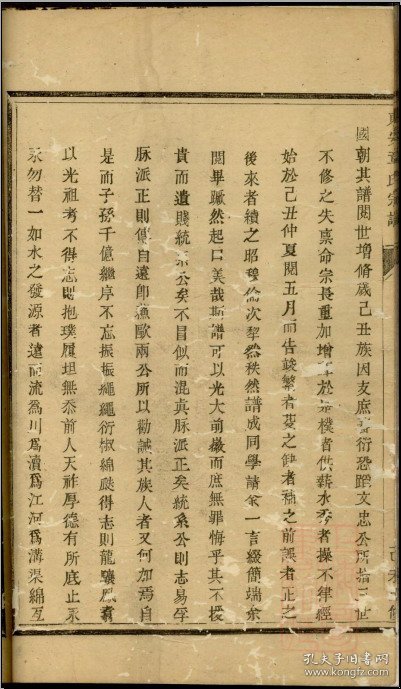 國朝其譜閱世增脩歲己丑族因支庶蕃衍恐蹈文忠公所指三世
不修之失稟命宗長重加增 於 樸者供薪水秀者操不律經
始於己丑仲夏閱五月而告竣繁者葼之缺者補之前誤者正之
後來者續之昭穆倫次犂然秩然譜成同學請余一言綴簡端余
閱畢蹶然起曰美哉斯譜可以光大前徽而庶無罪悔乎其不援
貴而遺賤統系公矣不目似而混真脉派正矣統系公則志易孚
脉派正則傳自遠卽漁歐兩公所以勸誡其族人者又何加焉自
是而子孫千億繼序不忘振振繩繩衍椒綿瓞得志則龍驤鳳翥
以光祖考不得志則抱璞履坦無忝前人天祚厚德有所底止永
永勿替一如水之發源者遠而流爲川爲瀆爲江河爲溝渠綿亙
氏宗譜
孔夫子旧书网
kongfz.com